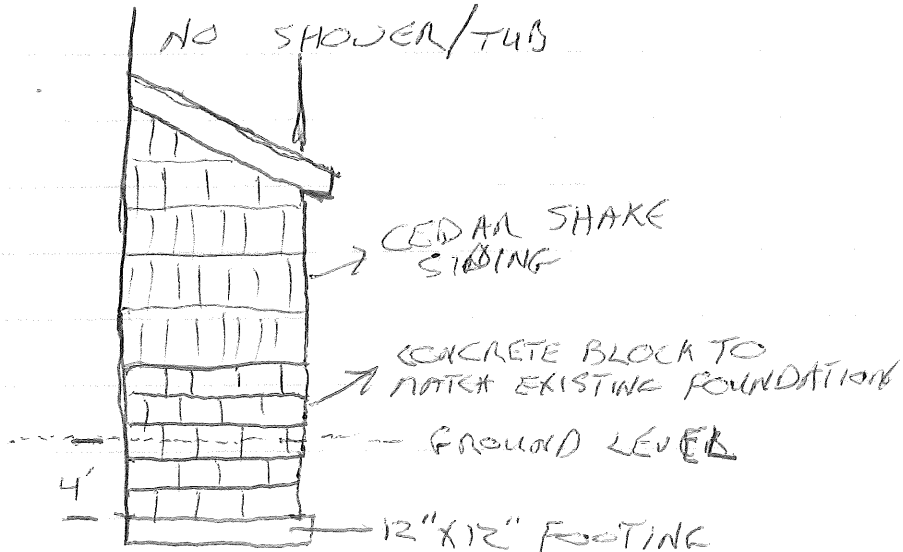 NO SHOWER/TUB
CEDAR SHAKE
SIDING
CONCRETE BLOCK TO
MATCH EXISTING FOUNDATION
GROUND LEVEL
4'
12"X12" FOOTING